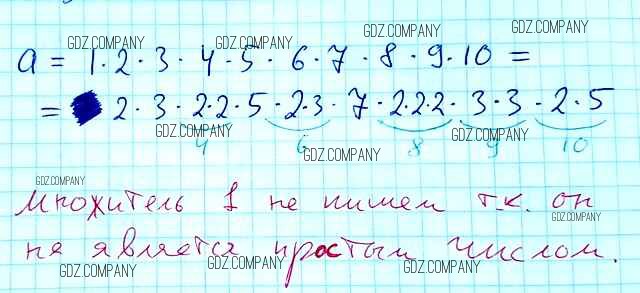 GDZ.COMPANY
GDZ.COMPANY GDZ.COMPANY
a = 1·2·3·4·5·6·7·8·9·10 =
= 2·3·2·2·5·2·3·7·2·2·2·3·3·2·5
GDZ.COMPANY GDZ.COMPANY
4 6 8 9 10
GDZ.COMPANY
GDZ.COMPANY
Множитель 1 не пишем т.к. он
GDZ.COMPANY
не является простым числом.
GDZ.COMPANY GDZ.COMPANY GDZ.COMPANY